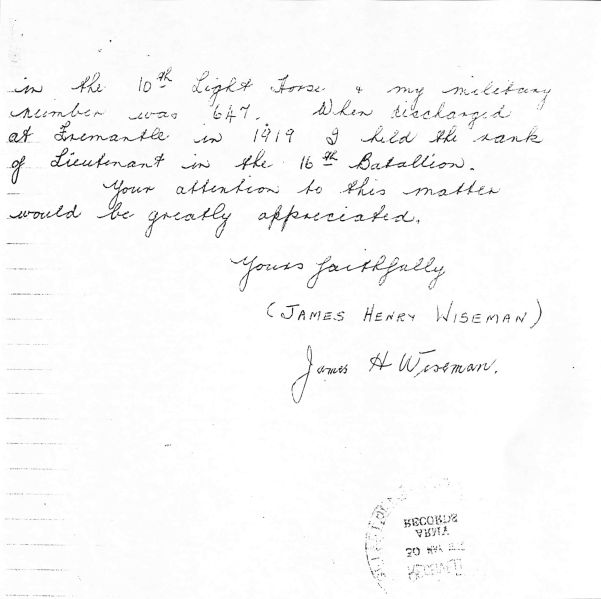 in the 10th Light Horse & my military
number was 647. When discharged
at Fremantle in 1919 I held the rank
of Lieutenant in the 16th Batallion.
Your attention to this matter
would be greatly appreciated.
Yours faithfully
(JAMES HENRY WISEMAN)
James H Wiseman.
RECORDS
ARMY
30 MAY
RECEIVED